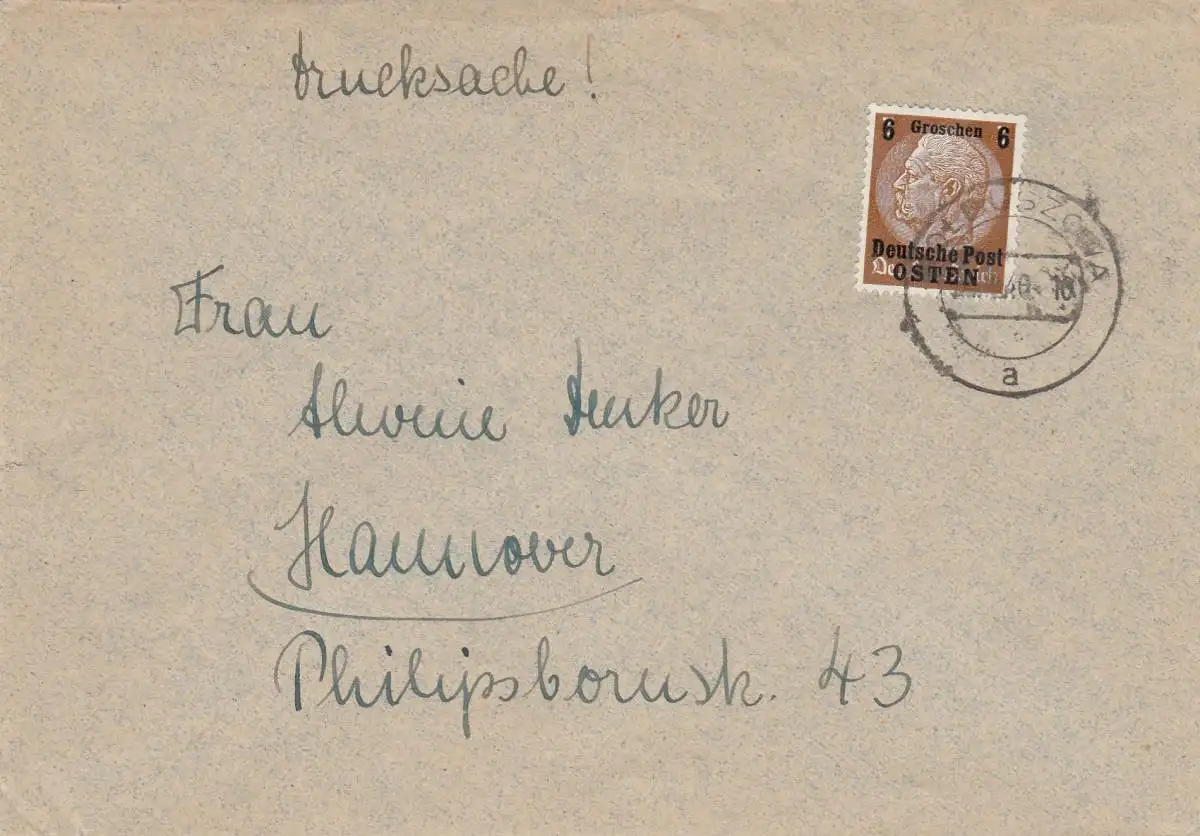 Drucksache!
6 Groschen 6
Deutsche Post
OSTEN
Frau
Alwine Denker
Hannover
Philipsbornstr. 43
a